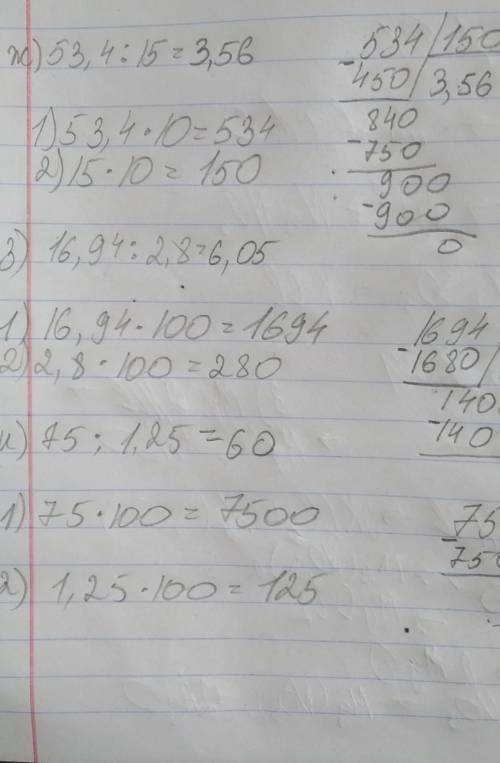 ж) 53,4 : 15 = 3,56
534 | 150
- 450 | 3,56
840
- 750
900
- 900
0
1) 53,4 · 10 = 534
2) 15 · 10 = 150
з) 16,94 : 2,8 = 6,05
1) 16,94 · 100 = 1694
2) 2,8 · 100 = 280
1694
- 1680
140
- 140
и) 75 : 1,25 = 60
1) 75 · 100 = 7500
2) 1,25 · 100 = 125
75
- 750